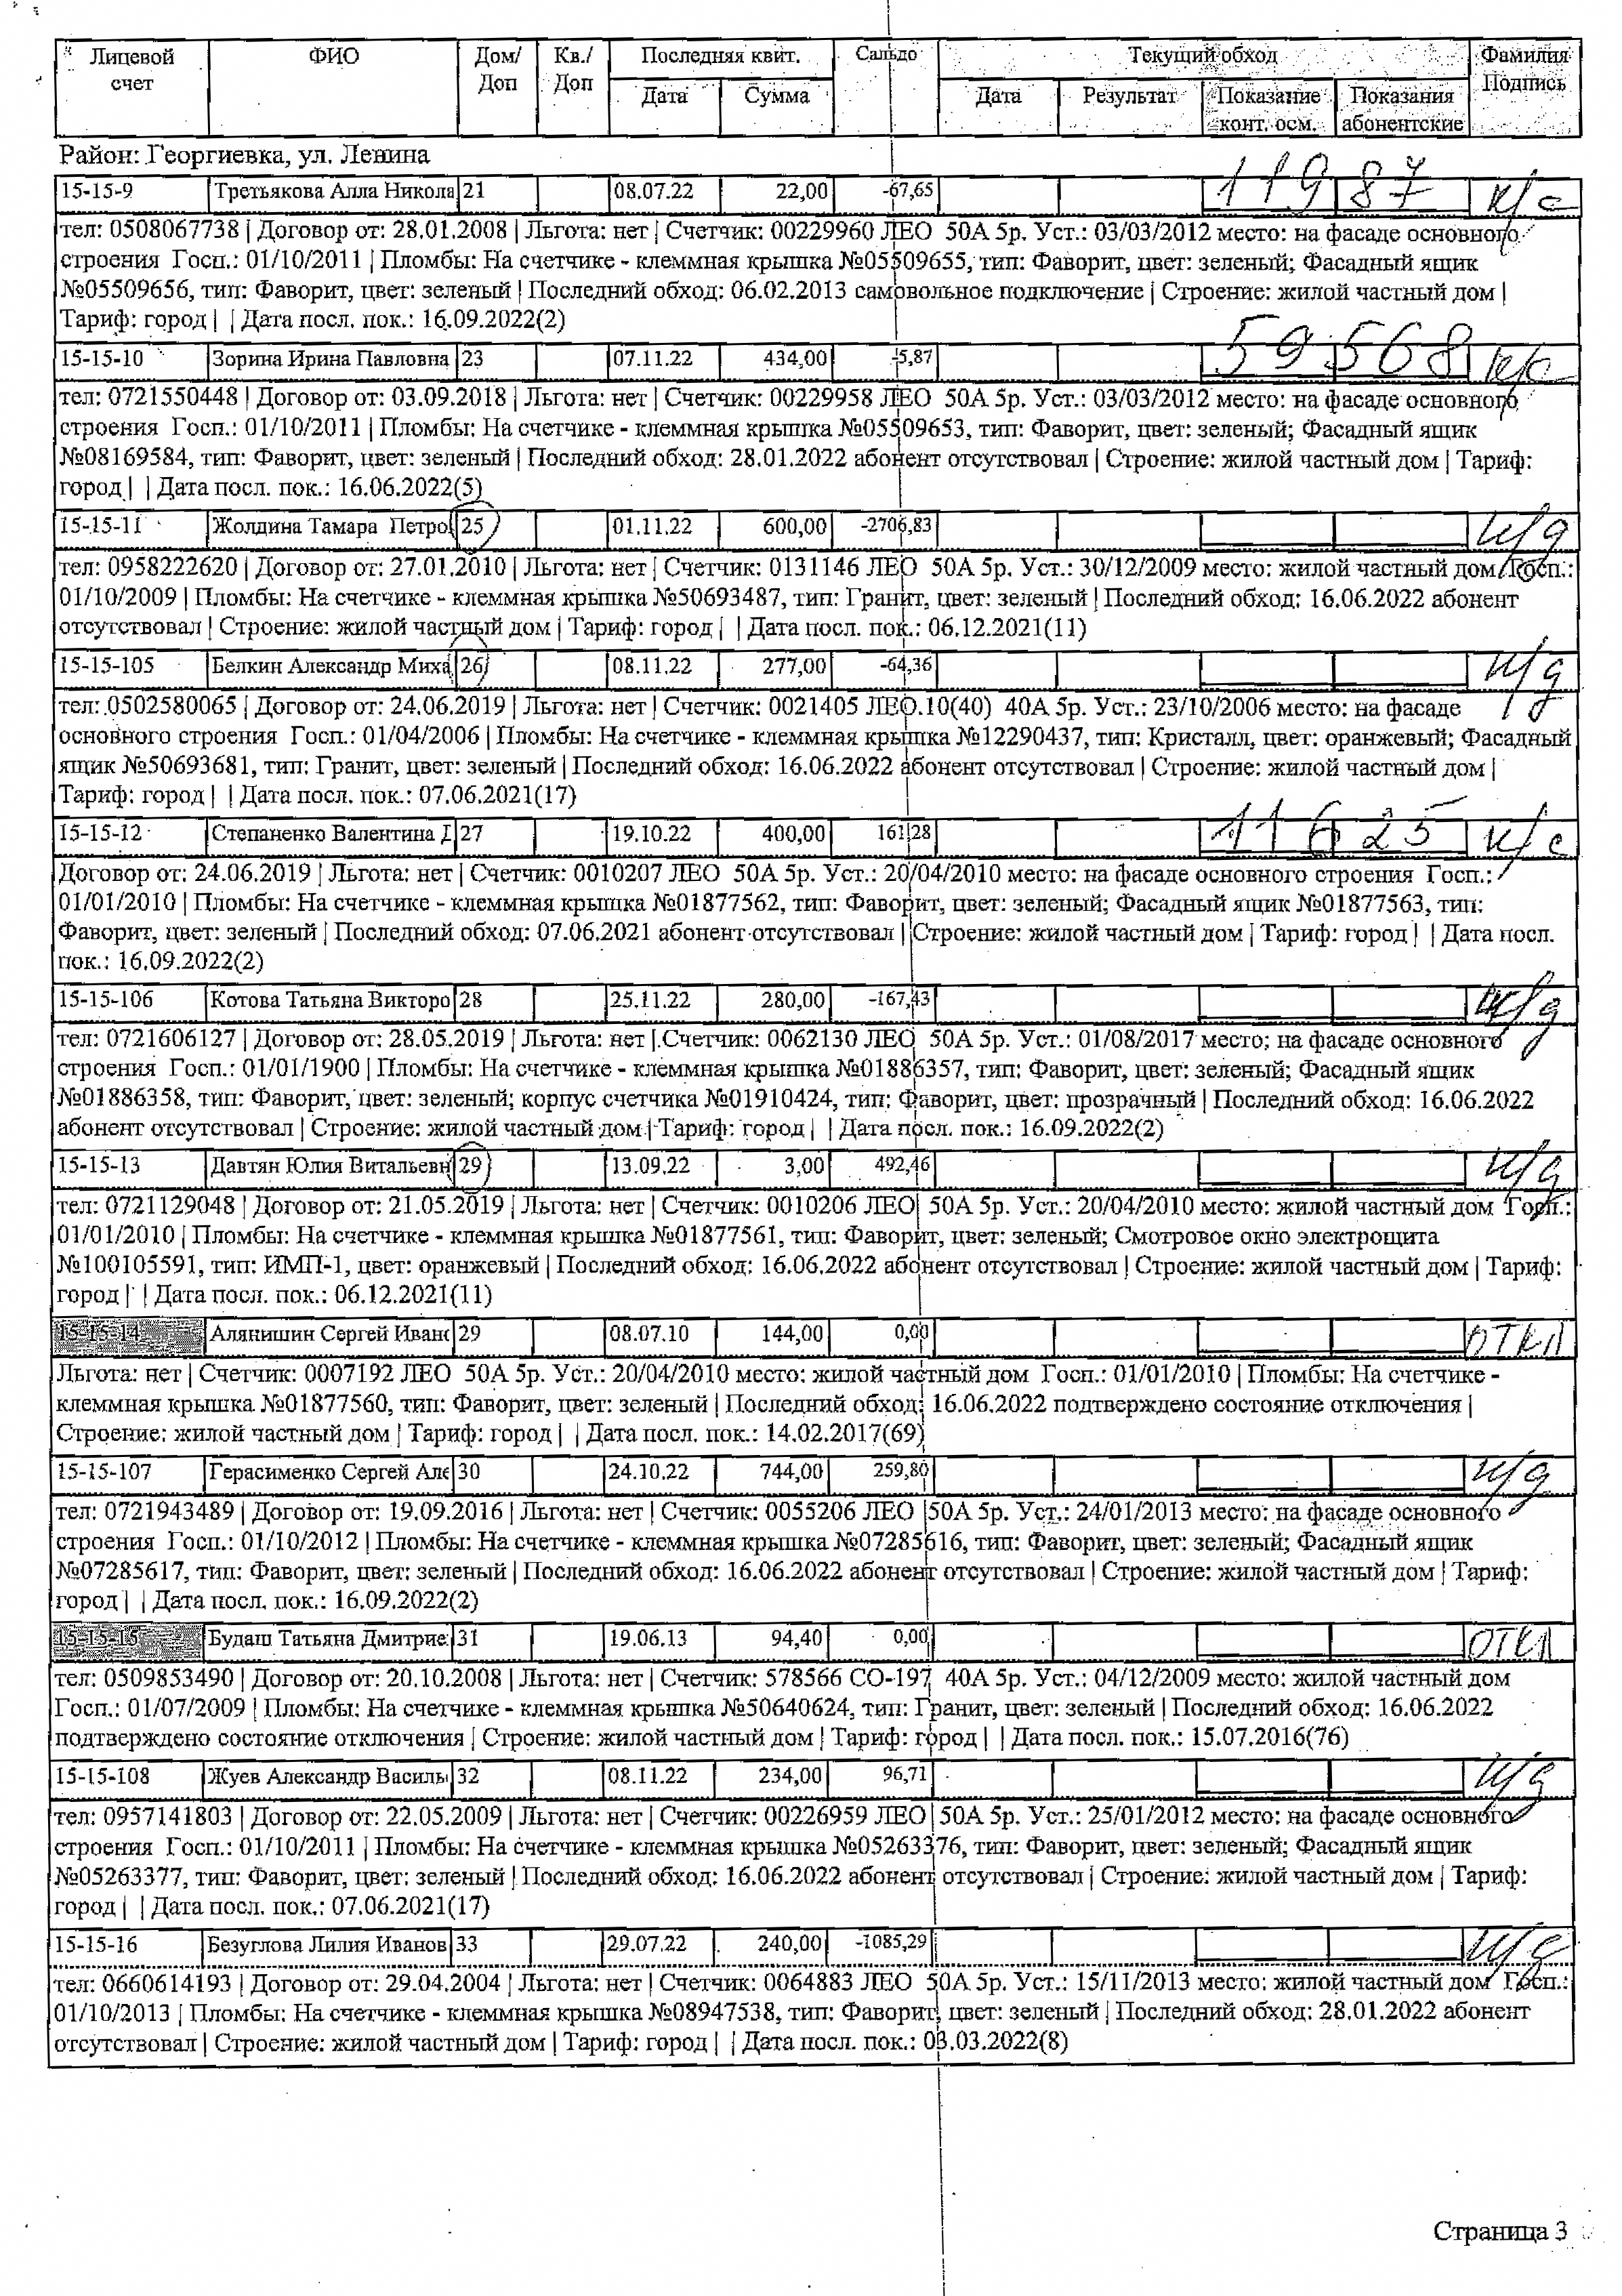 Лицевой счет | ФИО | Дом/Доп | Кв./Доп | Последняя квит. | Сальдо | Текущий обход | Фамилия Подпись
Дата | Сумма | Дата | Результат | Показание конт. осм. | Показания абонентские
Район: Георгиевка, ул. Ленина
15-15-9 Третьякова Алла Никола 21 08.07.22 22,00 -67,65 11987 к/с
тел: 0508067738 | Договор от: 28.01.2008 | Льгота: нет | Счетчик: 00229960 ЛЕО 50А 5р. Уст.: 03/03/2012 место: на фасаде основного
строения Госп.: 01/10/2011 | Пломбы: На счетчике - клеммная крышка №05509655, тип: Фаворит, цвет: зеленый; Фасадный ящик
№05509656, тип: Фаворит, цвет: зеленый | Последний обход: 06.02.2013 самовольное подключение | Строение: жилой частный дом |
Тариф: город | | Дата посл. пок.: 16.09.2022(2)
15-15-10 Зорина Ирина Павловна 23 07.11.22 434,00 -5,87 59568 к/с
тел: 0721550448 | Договор от: 03.09.2018 | Льгота: нет | Счетчик: 00229958 ЛЕО 50А 5р. Уст.: 03/03/2012 место: на фасаде основного
строения Госп.: 01/10/2011 | Пломбы: На счетчике - клеммная крышка №05509653, тип: Фаворит, цвет: зеленый; Фасадный ящик
№08169584, тип: Фаворит, цвет: зеленый | Последний обход: 28.01.2022 абонент отсутствовал | Строение: жилой частный дом | Тариф:
город | | Дата посл. пок.: 16.06.2022(5)
15-15-11 Жолдина Тамара Петро 25 01.11.22 600,00 -2706,83 н/д
тел: 0958222620 | Договор от: 27.01.2010 | Льгота: нет | Счетчик: 0131146 ЛЕО 50А 5р. Уст.: 30/12/2009 место: жилой частный дом Госп.:
01/10/2009 | Пломбы: На счетчике - клеммная крышка №50693487, тип: Гранит, цвет: зеленый | Последний обход: 16.06.2022 абонент
отсутствовал | Строение: жилой частный дом | Тариф: город | | Дата посл. пок.: 06.12.2021(11)
15-15-105 Белкин Александр Миха 26 08.11.22 277,00 -64,36 н/д
тел: 0502580065 | Договор от: 24.06.2019 | Льгота: нет | Счетчик: 0021405 ЛЕО.10(40) 40А 5р. Уст.: 23/10/2006 место: на фасаде
основного строения Госп.: 01/04/2006 | Пломбы: На счетчике - клеммная крышка №12290437, тип: Кристалл, цвет: оранжевый; Фасадный
ящик №50693681, тип: Гранит, цвет: зеленый | Последний обход: 16.06.2022 абонент отсутствовал | Строение: жилой частный дом |
Тариф: город | | Дата посл. пок.: 07.06.2021(17)
15-15-12 Степаненко Валентина Д 27 19.10.22 400,00 161,28 11625 к/с
Договор от: 24.06.2019 | Льгота: нет | Счетчик: 0010207 ЛЕО 50А 5р. Уст.: 20/04/2010 место: на фасаде основного строения Госп.:
01/01/2010 | Пломбы: На счетчике - клеммная крышка №01877562, тип: Фаворит, цвет: зеленый; Фасадный ящик №01877563, тип:
Фаворит, цвет: зеленый | Последний обход: 07.06.2021 абонент отсутствовал | Строение: жилой частный дом | Тариф: город | | Дата посл.
пок.: 16.09.2022(2)
15-15-106 Котова Татьяна Викторо 28 25.11.22 280,00 -167,43 н/д
тел: 0721606127 | Договор от: 28.05.2019 | Льгота: нет | Счетчик: 0062130 ЛЕО 50А 5р. Уст.: 01/08/2017 место: на фасаде основного
строения Госп.: 01/01/1900 | Пломбы: На счетчике - клеммная крышка №01886357, тип: Фаворит, цвет: зеленый; Фасадный ящик
№01886358, тип: Фаворит, цвет: зеленый; корпус счетчика №01910424, тип: Фаворит, цвет: прозрачный | Последний обход: 16.06.2022
абонент отсутствовал | Строение: жилой частный дом | Тариф: город | | Дата посл. пок.: 16.09.2022(2)
15-15-13 Давтян Юлия Витальевн 29 13.09.22 3,00 492,46 н/д
тел: 0721129048 | Договор от: 21.05.2019 | Льгота: нет | Счетчик: 0010206 ЛЕО 50А 5р. Уст.: 20/04/2010 место: жилой частный дом Госп.:
01/01/2010 | Пломбы: На счетчике - клеммная крышка №01877561, тип: Фаворит, цвет: зеленый; Смотровое окно электрощита
№100105591, тип: ИМП-1, цвет: оранжевый | Последний обход: 16.06.2022 абонент отсутствовал | Строение: жилой частный дом | Тариф:
город | | Дата посл. пок.: 06.12.2021(11)
15-15-14 Алянишин Сергей Иванс 29 08.07.10 144,00 0,00 ОТКЛ
Льгота: нет | Счетчик: 0007192 ЛЕО 50А 5р. Уст.: 20/04/2010 место: жилой частный дом Госп.: 01/01/2010 | Пломбы: На счетчике -
клеммная крышка №01877560, тип: Фаворит, цвет: зеленый | Последний обход: 16.06.2022 подтверждено состояние отключения |
Строение: жилой частный дом | Тариф: город | | Дата посл. пок.: 14.02.2017(69)
15-15-107 Герасименко Сергей Але 30 24.10.22 744,00 259,80 н/д
тел: 0721943489 | Договор от: 19.09.2016 | Льгота: нет | Счетчик: 0055206 ЛЕО 50А 5р. Уст.: 24/01/2013 место: на фасаде основного
строения Госп.: 01/10/2012 | Пломбы: На счетчике - клеммная крышка №07285616, тип: Фаворит, цвет: зеленый; Фасадный ящик
№07285617, тип: Фаворит, цвет: зеленый | Последний обход: 16.06.2022 абонент отсутствовал | Строение: жилой частный дом | Тариф:
город | | Дата посл. пок.: 16.09.2022(2)
15-15-15 Будаш Татьяна Дмитрие 31 19.06.13 94,40 0,00 ОТКЛ
тел: 0509853490 | Договор от: 20.10.2008 | Льгота: нет | Счетчик: 578566 СО-197 40А 5р. Уст.: 04/12/2009 место: жилой частный дом
Госп.: 01/07/2009 | Пломбы: На счетчике - клеммная крышка №50640624, тип: Гранит, цвет: зеленый | Последний обход: 16.06.2022
подтверждено состояние отключения | Строение: жилой частный дом | Тариф: город | | Дата посл. пок.: 15.07.2016(76)
15-15-108 Жуев Александр Василы 32 08.11.22 234,00 96,71 н/д
тел: 0957141803 | Договор от: 22.05.2009 | Льгота: нет | Счетчик: 00226959 ЛЕО 50А 5р. Уст.: 25/01/2012 место: на фасаде основного
строения Госп.: 01/10/2011 | Пломбы: На счетчике - клеммная крышка №05263376, тип: Фаворит, цвет: зеленый; Фасадный ящик
№05263377, тип: Фаворит, цвет: зеленый | Последний обход: 16.06.2022 абонент отсутствовал | Строение: жилой частный дом | Тариф:
город | | Дата посл. пок.: 07.06.2021(17)
15-15-16 Безуглова Лилия Иванов 33 29.07.22 240,00 -1085,29 н/д
тел: 0660614193 | Договор от: 29.04.2004 | Льгота: нет | Счетчик: 0064883 ЛЕО 50А 5р. Уст.: 15/11/2013 место: жилой частный дом Госп.:
01/10/2013 | Пломбы: На счетчике - клеммная крышка №08947538, тип: Фаворит, цвет: зеленый | Последний обход: 28.01.2022 абонент
отсутствовал | Строение: жилой частный дом | Тариф: город | | Дата посл. пок.: 03.03.2022(8)
Страница 3